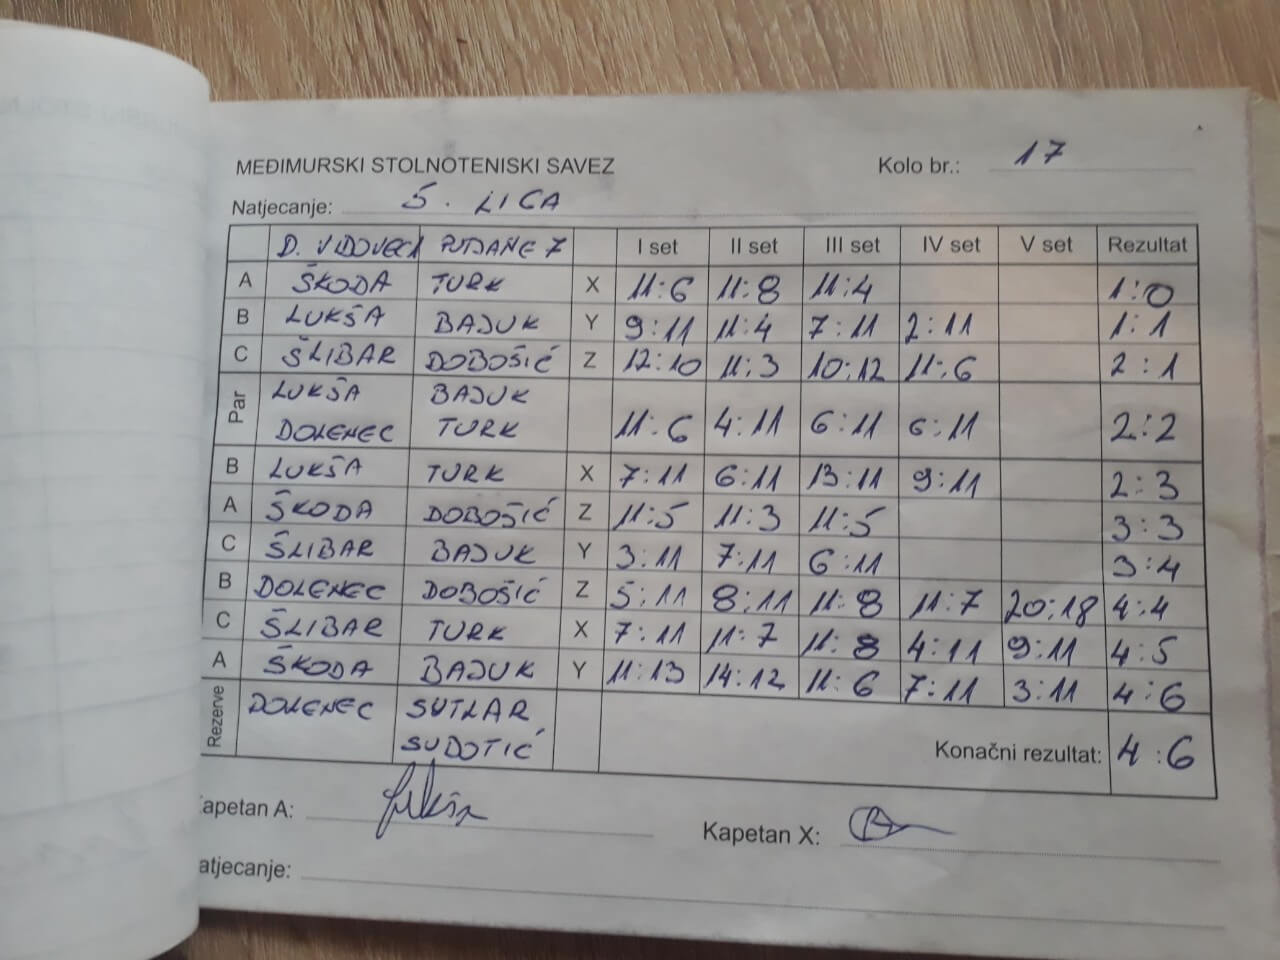 MEĐIMURSKI STOLNOTENISKI SAVEZ Kolo br.: 17
Natjecanje: 5. LIGA
D. VIDOVEC PUTJANE 7 I set II set III set IV set V set Rezultat
A ŠKODA TURK X 11:6 11:8 11:4 1:0
B LUKŠA BAJUK Y 9:11 11:4 7:11 2:11 1:1
C ŠLIBAR DOBOŠIĆ Z 12:10 11:3 10:12 11:6 2:1
Par LUKŠA BAJUK
DOLENEC TURK 11:6 4:11 6:11 6:11 2:2
B LUKŠA TURK X 7:11 6:11 13:11 9:11 2:3
A ŠKODA DOBOŠIĆ Z 11:5 11:3 11:5 3:3
C ŠLIBAR BAJUK Y 3:11 7:11 6:11 3:4
B DOLENEC DOBOŠIĆ Z 5:11 8:11 11:8 11:7 20:18 4:4
C ŠLIBAR TURK X 7:11 11:7 11:8 4:11 9:11 4:5
A ŠKODA BAJUK Y 11:13 14:12 11:6 7:11 3:11 4:6
Rezerve DOLENEC SUTLAR
SUDOTIĆ Konačni rezultat: 4:6
apetan A: Lukša Kapetan X:
atjecanje: